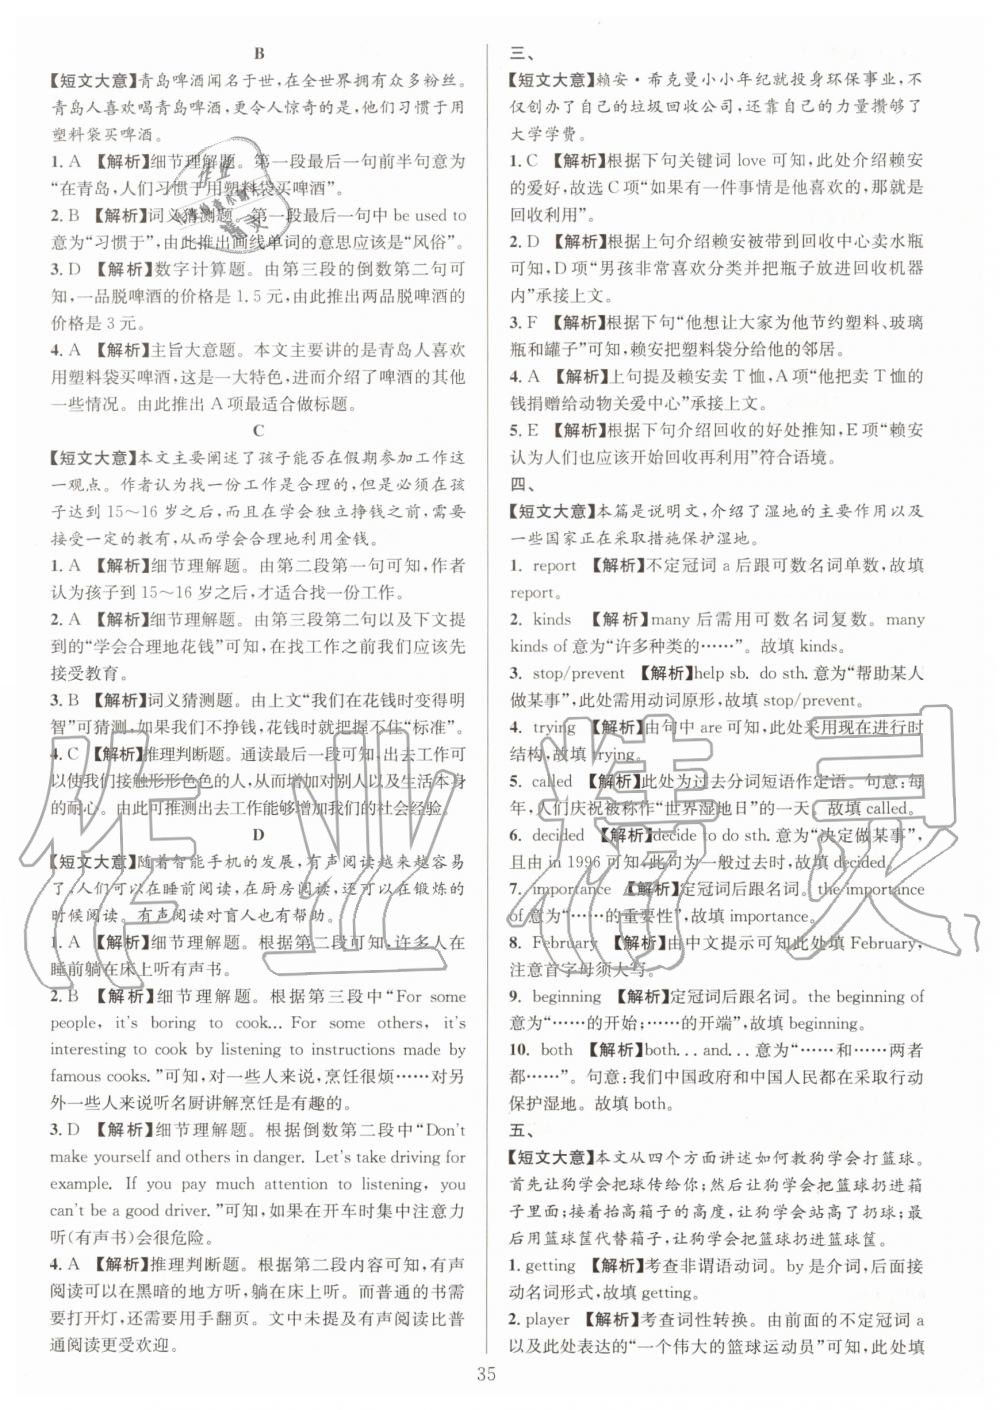 B
【短文大意】青岛啤酒闻名于世,在全世界拥有众多粉丝。
青岛人喜欢喝青岛啤酒,更令人惊奇的是,他们习惯于用
塑料袋买啤酒。
1. A 【解析】细节理解题。第一段最后一句前半句意为
“在青岛,人们习惯于用塑料袋买啤酒”。
2. B 【解析】词义猜测题。第一段最后一句中 be used to
意为“习惯于”,由此推出画线单词的意思应该是“风俗”。
3. D 【解析】数字计算题。由第三段的倒数第二句可
知,一品脱啤酒的价格是 1.5 元,由此推出两品脱啤酒的
价格是 3 元。
4. A 【解析】主旨大意题。本文主要讲的是青岛人喜欢
用塑料袋买啤酒,这是一大特色,进而介绍了啤酒的其他
一些情况。由此推出 A 项最适合做标题。
C
【短文大意】本文主要阐述了孩子能否在假期参加工作这
一观点。作者认为找一份工作是合理的,但是必须在孩
子达到 15～16 岁之后,而且在学会独立挣钱之前,需要
接受一定的教育,从而学会合理地利用金钱。
1. A 【解析】细节理解题。由第二段第一句可知,作者
认为孩子到 15～16 岁之后,才适合找一份工作。
2. A 【解析】细节理解题。由第三段第二句以及下文提
到的“学会合理地花钱”可知,在找工作之前我们应该先
接受教育。
3. B 【解析】词义猜测题。由上文“我们在花钱时变得明
智”可猜测,如果我们不挣钱,花钱时就会缺少“标准”。
4. C 【解析】推理判断题。通读最后一段可知,出去工作可
以使我们接触形形色色的人,从而增加对别人以及生活本身
的耐心。由此可推测出去工作能够增加我们的社会经验。
D
【短文大意】随着智能手机的发展,有声阅读越来越容易
了,人们可以在睡前阅读,在厨房阅读,还可以在锻炼的
时候阅读。有声阅读对盲人也有帮助。
1. A 【解析】细节理解题。根据第二段可知,许多人在
睡前躺在床上听有声书。
2. B 【解析】细节理解题。根据第三段中“For some
people, it's boring to cook... For some others, it's
interesting to cook by listening to instructions made by
famous cooks.”可知,对一些人来说,烹饪很烦……对另
外一些人来说听名厨讲解烹饪是有趣的。
3. D 【解析】细节理解题。根据倒数第二段中“Don't
make yourself and others in danger. Let's take driving for
example. If you pay much attention to listening, you
can't be a good driver.”可知,如果在开车时集中注意力
听(有声书)会很危险。
4. A 【解析】推理判断题。根据第二段内容可知,有声
阅读可以在黑暗的地方听,躺在床上听。而普通的书需
要打开灯,还需要用手翻页。文中未提及有声阅读比普
通阅读更受欢迎。
三、
【短文大意】赖安·希克曼小小年纪就投身环保事业,不
仅创办了自己的垃圾回收公司,还靠自己的力量攒够了
大学学费。
1. C 【解析】根据下句关键词 love 可知,此处介绍赖安
的爱好,故选 C 项“如果有一件事情是他喜欢的,那就是
回收利用”。
2. D 【解析】根据上句介绍赖安被带到回收中心卖水瓶
可知,D 项“男孩非常喜欢分类并把瓶子放进回收机器
内”承接上文。
3. F 【解析】根据下句“他想让大家为他节约塑料、玻璃
瓶和罐子”可知,赖安把塑料袋分给他的邻居。
4. A 【解析】上句提及赖安卖 T 恤,A 项“他把卖 T 恤的
钱捐赠给动物关爱中心”承接上文。
5. E 【解析】根据下句介绍回收的好处推知,E 项“赖安
认为人们也应该开始回收再利用”符合语境。
四、
【短文大意】本篇是说明文,介绍了湿地的主要作用以及
一些国家正在采取措施保护湿地。
1. report 【解析】不定冠词 a 后跟可数名词单数,故填
report。
2. kinds 【解析】many 后需用可数名词复数。many
kinds of 意为“许多种类的……”。故填 kinds。
3. stop/prevent 【解析】help sb. do sth. 意为“帮助某人
做某事”,此处需用动词原形,故填 stop/prevent。
4. trying 【解析】由句中 are 可知,此处采用现在进行时
结构,故填 trying。
5. called 【解析】此处为过去分词短语作定语。句意:每
年,人们庆祝被称作“世界湿地日”的一天。故填 called。
6. decided 【解析】decide to do sth. 意为“决定做某事”,
且由 in 1996 可知,此句为一般过去时,故填 decided。
7. importance 【解析】定冠词后跟名词。the importance
of 意为“……的重要性”,故填 importance。
8. February 【解析】由中文提示可知此处填 February,
注意首字母须大写。
9. beginning 【解析】定冠词后跟名词。the beginning of
意为“……的开始;……的开端”,故填 beginning。
10. both 【解析】both...and...意为“……和……两者
都……”。句意:我们中国政府和中国人民都在采取行动
保护湿地。故填 both。
五、
【短文大意】本文从四个方面讲述如何教狗学会打篮球。
首先让狗学会把球传给你;然后让狗学会把篮球扔进箱
子里面;接着抬高箱子的高度,让狗学会站高了扔球;最
后用篮球筐代替箱子,让狗学会把篮球扔进篮球筐。
1. getting 【解析】考查非谓语动词。by 是介词,后面接
动名词形式,故填 getting。
2. player 【解析】考查词性转换。由前面的不定冠词 a
以及此处表达的“一个伟大的篮球运动员”可知,此处填
35
作业精灵